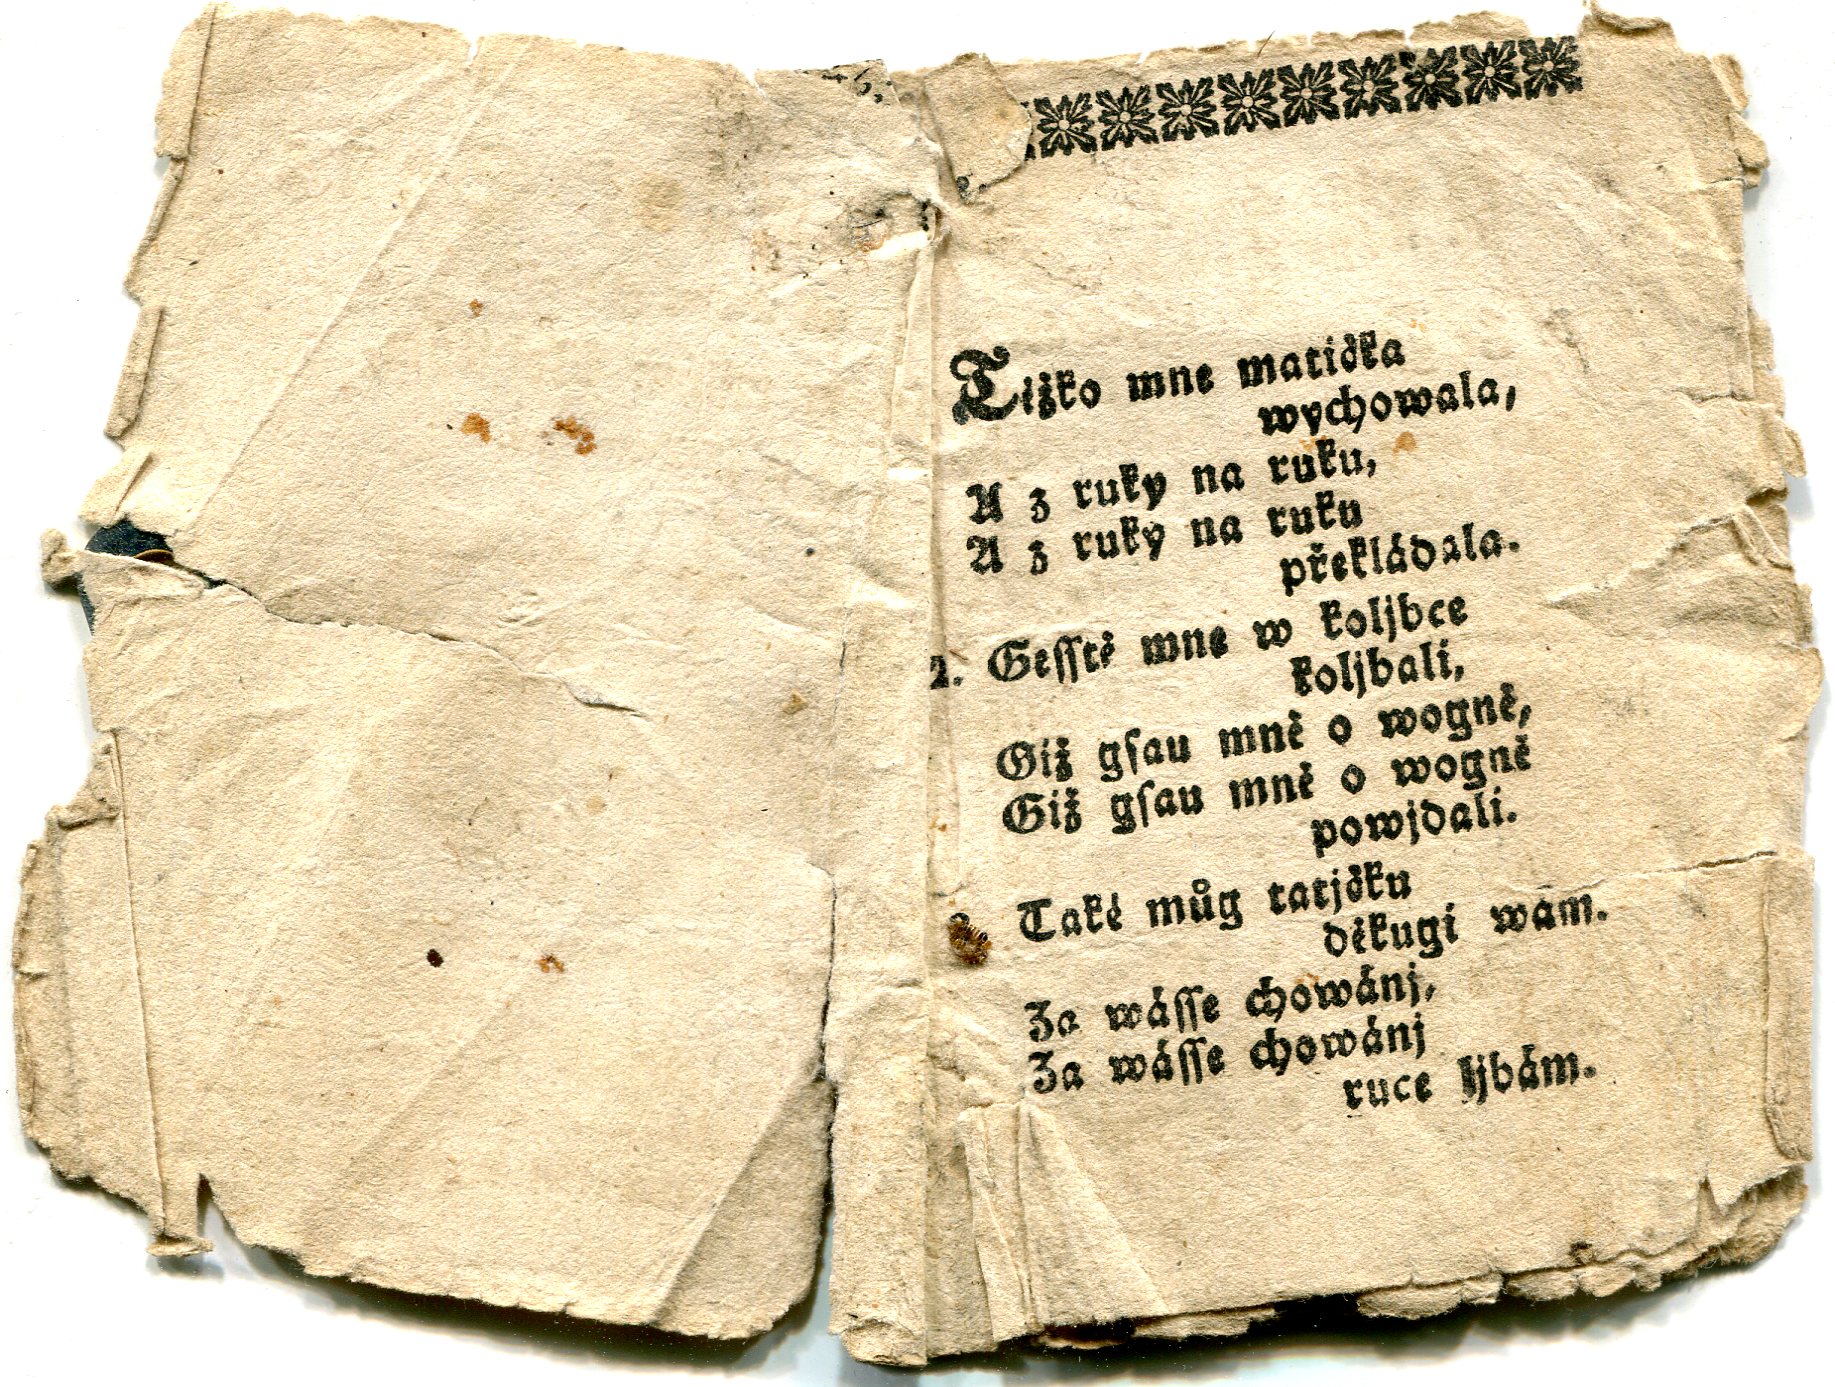 Těžko mne matička
wychowala,
A z ruky na ruku,
A z ruky na ruku
překládala.
2. Gessstě mne w koljbce
koljbali,
Giž gsau mně o wogně,
Giž gsau mně o wogně
powjdali.
Také můg tatjčku
děkugi wám.
Za wásse chowánj,
Za wásse chowánj
ruce ljbám.